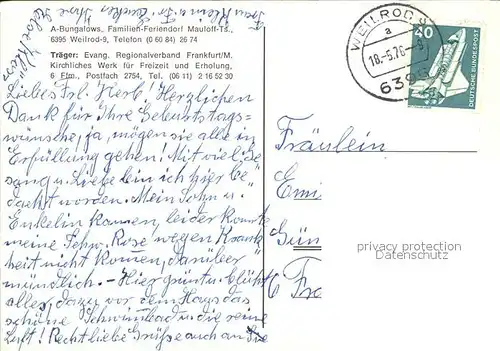 A-Bungalows, Familien-Feriendorf Mauloff-Ts.,
6395 Weilrod-9, Telefon (0 60 84) 26 74
Träger: Evang. Regionalverband Frankfurt/M.
Kirchliches Werk für Freizeit und Erholung,
6 Ffm., Postfach 2754, Tel. (06 11) 2 16 52 30
Liebes Frl. Herb! Herzlichen
Dank für Ihre Geburtstags-
wünsche, ja, mögen sie alle in
Erfüllung gehen! Mit viel Be
sang u. Liebe bin ich hier be
dacht worden. Mein Sohn u.
Enkelin kamen, leider konnte
meine Schw. Rose wegen Krank
heit nicht kommen, darüber
mündlich. - Hier grünt u. blüht
alles, dazu vor dem Haus das
schöne Schwimmbad u. die reine
Luft! Recht liebe Grüße auch an
WEILROD
a
18.-6.76
639
40
DEUTSCHE BUNDESPOST
Fräulein
Emi
Gün
6 Fr
privacy protection
Datenschutz